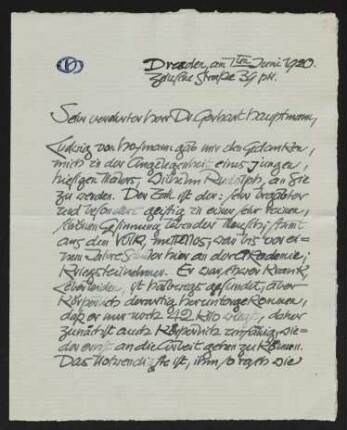 Dresden, am 1ten Juni 1920.
Straße 39 ptr.
Sehr verehrter Herr Dr. Gerhart Hauptmann,
Ludwig von Hofmann gab mir den Gedanken,
mich in der Angelegenheit eines jungen,
hiesigen Malers, Wilhelm Rudolph, an Sie
zu wenden. Der Fall ist der: sehr begabter
und besonders geistig in einer sehr
schönen Gesinnung lebender Mensch, stammt
aus dem Volk, mittellos, war bis vor
Jahre Schüler hier an der Akademie,
Kriegsteilnehmer. Er war schwer krank,
ist halbwegs gesundet, aber
körperlich derartig heruntergekommen,
daß er nur noch 42 Kilo wiegt, daher
zunächst auch körperlich unfähig, wie-
der ernst an die Arbeit gehen zu können.
Das Notwendigste ist, ihm so rasch wie